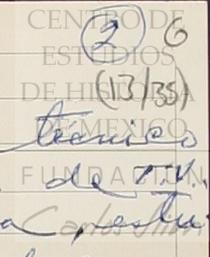 CENTRO DE
ESTUDIOS
DE HISTORIA
DE MÉXICO
FUNDACIÓN
Carlos Slim
2 6
(13/35)
técnico
de T.V.
a, estu